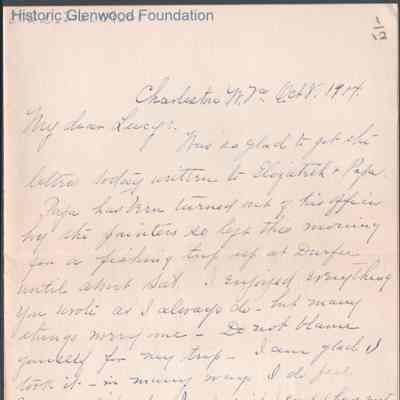 Historic Glenwood Foundation
1/12
Charleston W. Va. Oct 8. 1914.
My dear Lucy:
Was so glad to get the
letters today written to Elizabeth & Papa.
Papa has been turned out of his office
by the painters so left this morning
for a fishing trip up at
until about Sat. I enjoyed everything
you wrote as I always do - but many
things worry me - Do not blame
yourself for my trip - I am glad I
took it - in many ways I do feel